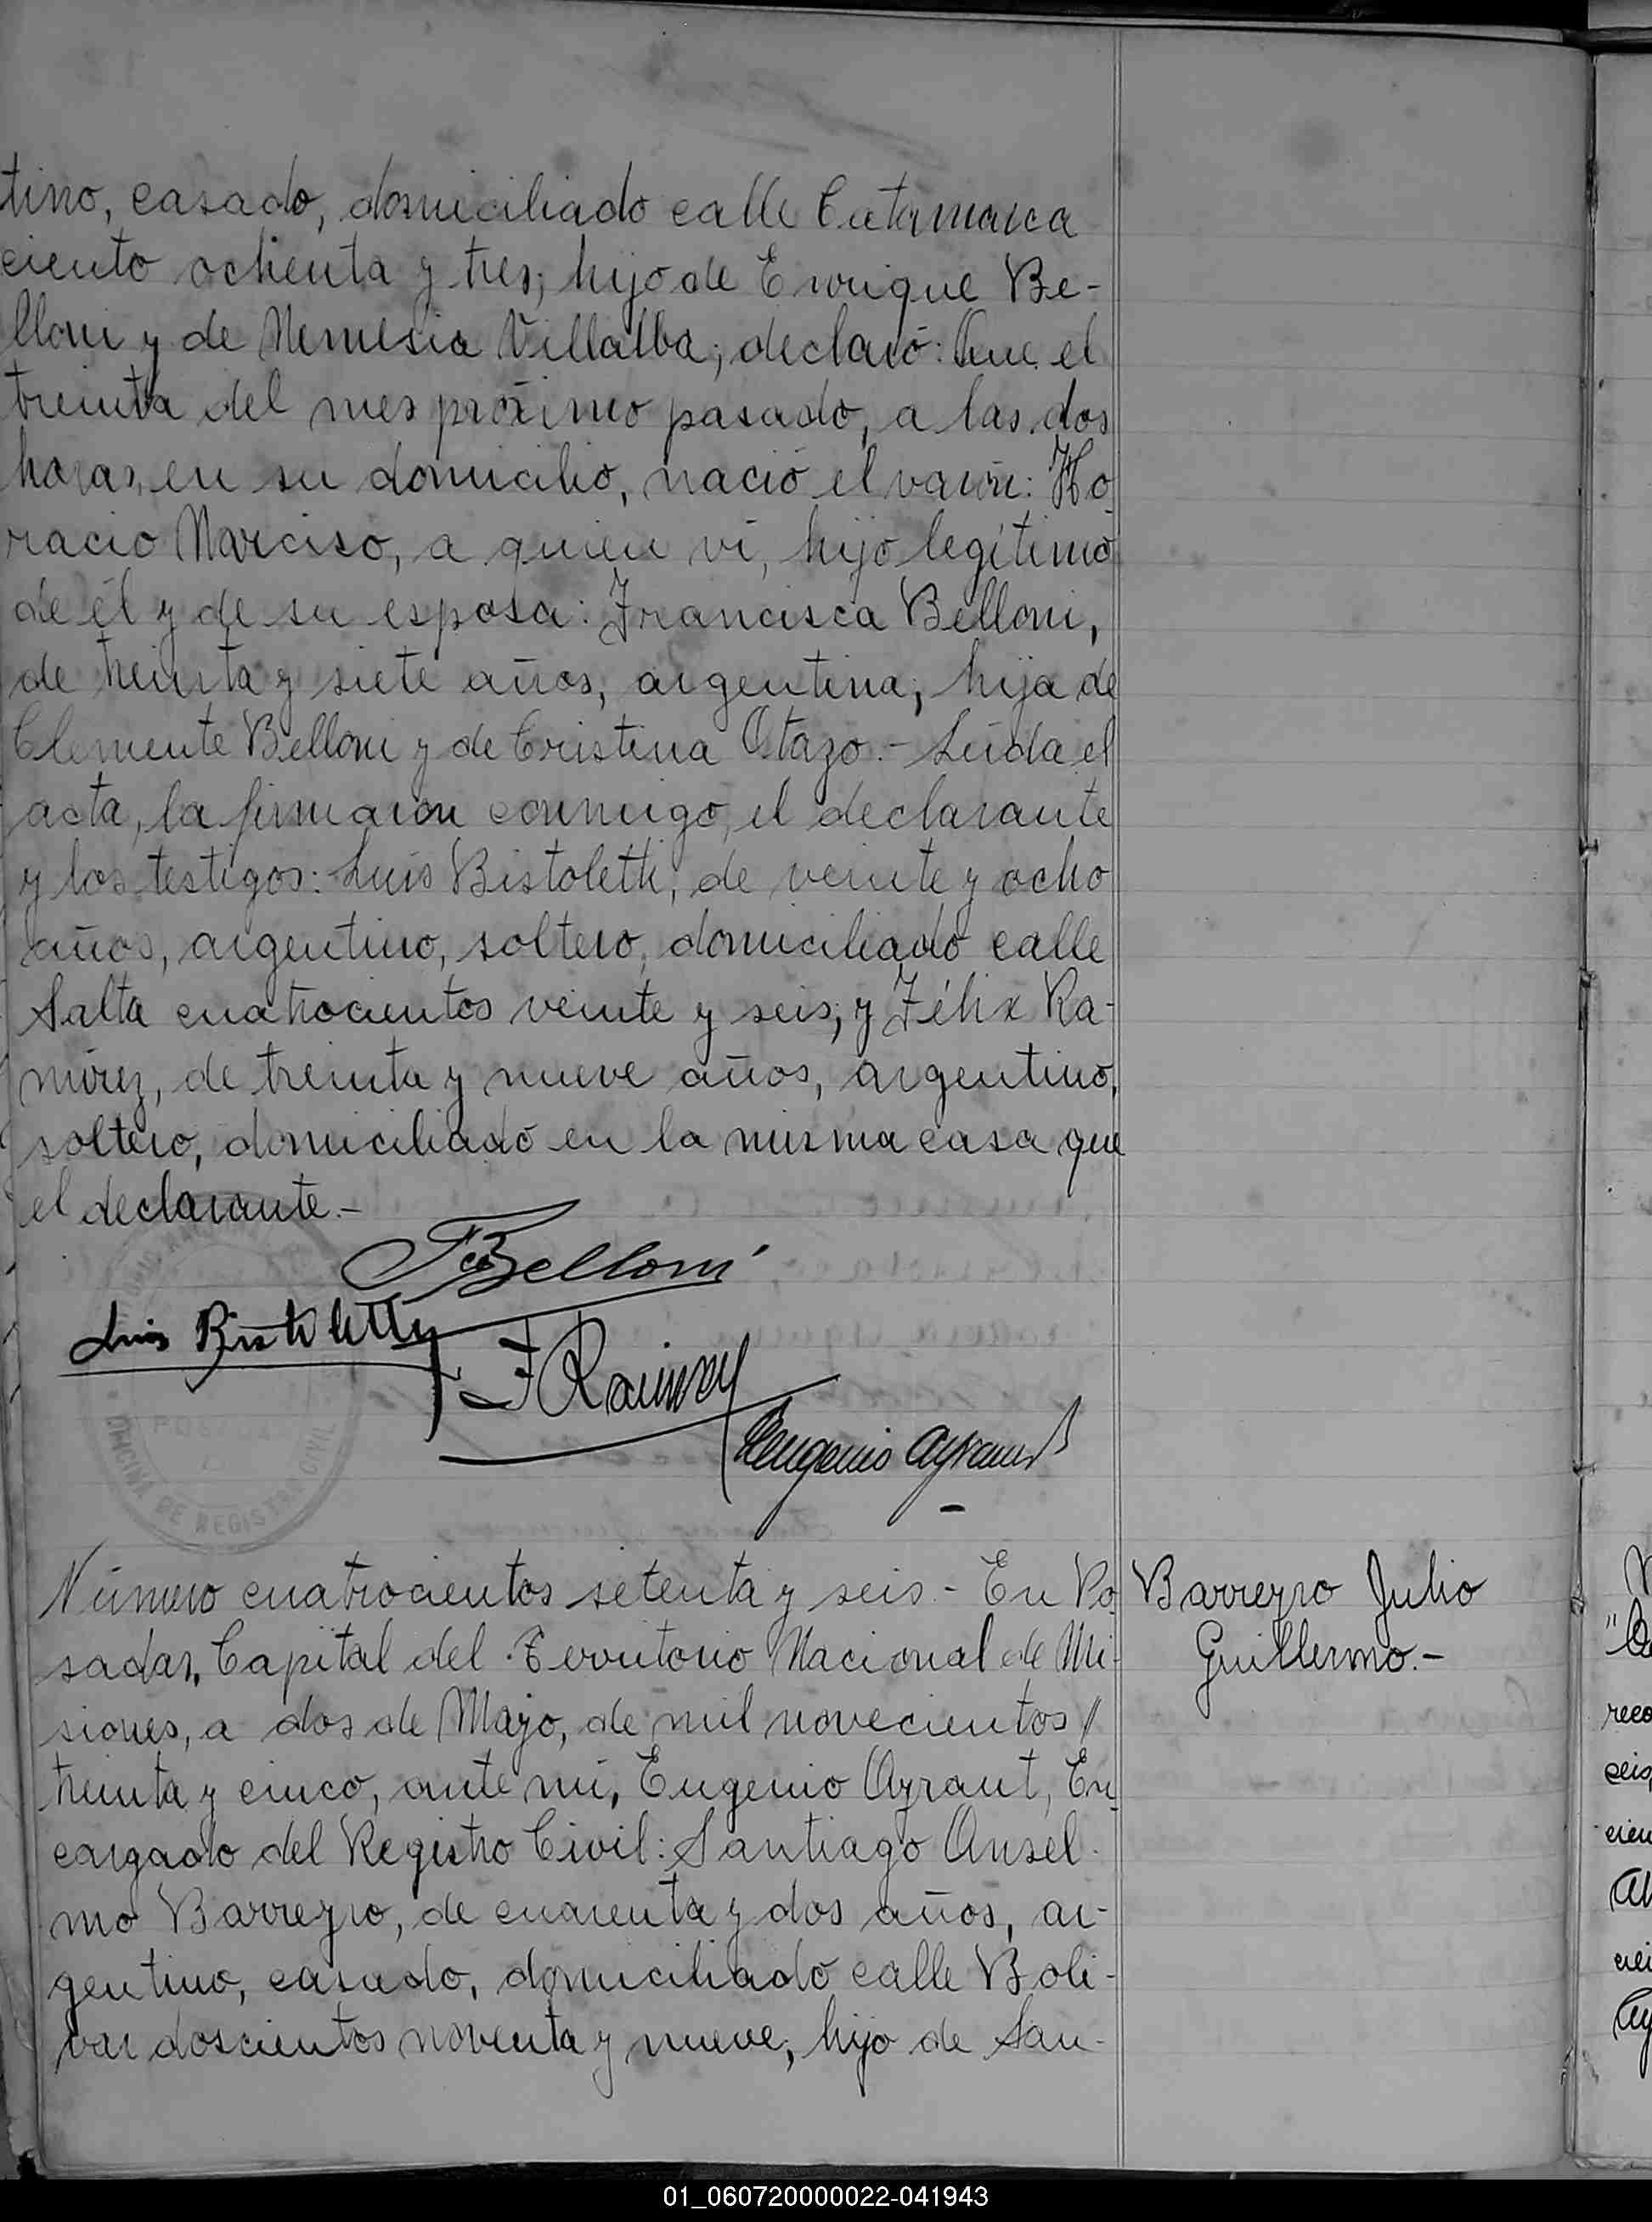 tino, casado, domiciliado calle Catamarca
ciento ochenta y tres; hijo de Enrique Be-
lloni y de Nemesia Villalba; declaró: Que el
treinta del mes próximo pasado, a las dos
horas, en su domicilio, nació el varón: Ho-
racio Narciso, a quien vi, hijo legítimo
de él y de su esposa: Francisca Belloni,
de treinta y siete años, argentina, hija de
Clemente Belloni y de Cristina Otazo.- Leída el
acta, la firmaron conmigo, el declarante
y los testigos: Luis Bistoletti, de veinte y ocho
años, argentino, soltero, domiciliado calle
Salta cuatrocientos veinte y seis; y Félix Ra-
mírez, de treinta y nueve años, argentino,
soltero, domiciliado en la misma casa que
el declarante.-
Belloni
Luis Bistoletti
F Ramirez
Eugenio Ayraut
OFICINA DE REGISTRO CIVIL
Número cuatrocientos setenta y seis.- En Po-
sadas, Capital del Territorio Nacional de Mi-
siones, a dos de Mayo, de mil novecientos //
treinta y cinco, ante mí, Eugenio Ayraut, En-
cargado del Registro Civil: Santiago Ansel-
mo Barreyro, de cuarenta y dos años, ar-
gentino, casado, domiciliado calle Boli-
var doscientos noventa y nueve, hijo de San-
Barreyro Julio
Guillermo.-
reco
seis
cien
01_060720000022-041943